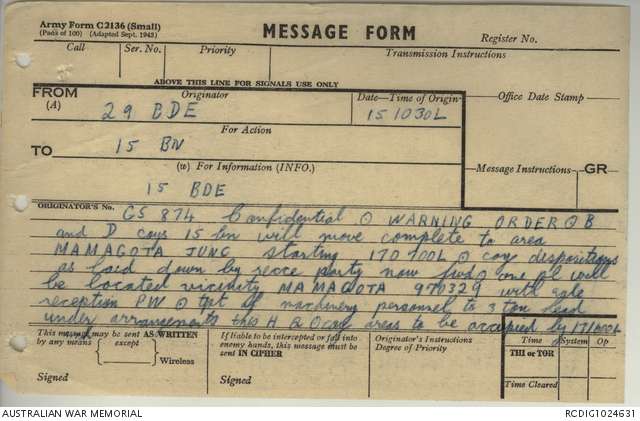 Army Form C 2136 (Small)
(Pads of 100) (Adapted Sept. 1943)
MESSAGE FORM
Register No.
Call
Ser. No.
Priority
Transmission Instructions
ABOVE THIS LINE FOR SIGNALS USE ONLY
FROM
(A)
Originator
29 BDE
Date—Time of Origin
151030L
Office Date Stamp
For Action
TO
15 BN
(W) For Information (INFO.)
15 BDE
Message Instructions
GR
ORIGINATOR'S No.
GS 874 Confidential ⊙ WARNING ORDER ⊙ B
and D coys 15 bn will move complete to area
MAMAGOTA JUNG starting 170700L ⊙ coy dispositions
as laid down by recce party now fwd ⊙ one pl will
be located vicinity MAMAGOTA 970329 with
reception PW ⊙ tpt of machinery personnel to 3 ton
under arrangements this H Q areas to be occupied by
This message may be sent AS WRITTEN
by any means
except
Wireless
Signed
If liable to be intercepted or fall into
enemy hands, this message must be
sent IN CIPHER
Signed
Originator's Instructions
Degree of Priority
Time
System
Op
THI or TOR
Time Cleared
AUSTRALIAN WAR MEMORIAL
RCDIG1024631